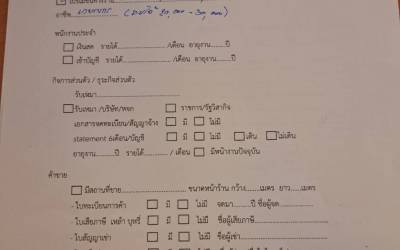 อาชีพ (รายได้ 20,000 - 30,000)
พนักงานประจำ
เงินสด รายได้............../เดือน อายุงาน........ปี
เข้าบัญชี รายได้............../เดือน อายุงาน........ปี
กิจการส่วนตัว / ธุระกิจส่วนตัว
รับเหมา..............
รับเหมา /บริษัท/หจก ราชการ/รัฐวิสากิจ
เอกสารจดทะเบียน/สัญญาจ้าง มี ไม่มี
statement 6เดือน/บัญชี มี ไม่มี เดิน ไม่เดิน
อายุงาน........ปี รายได้........ / เดือน มีหน้างานปัจจุบัน
ค้าขาย
มีสถานที่ขาย.............. ขนาดหน้าร้าน กว้าง........เมตร ยาว......เมตร
- ใบทะเบียนการค้า มี ไม่มี จดมา........ปี ชื่อผู้จด..............
- ใบเสียภาษี เหล้า บุหรี่ มี ไม่มี ชื่อผู้เสียภาษี..............
- ใบสัญญาเช่า มี ไม่มี ชื่อผู้เช่า..............